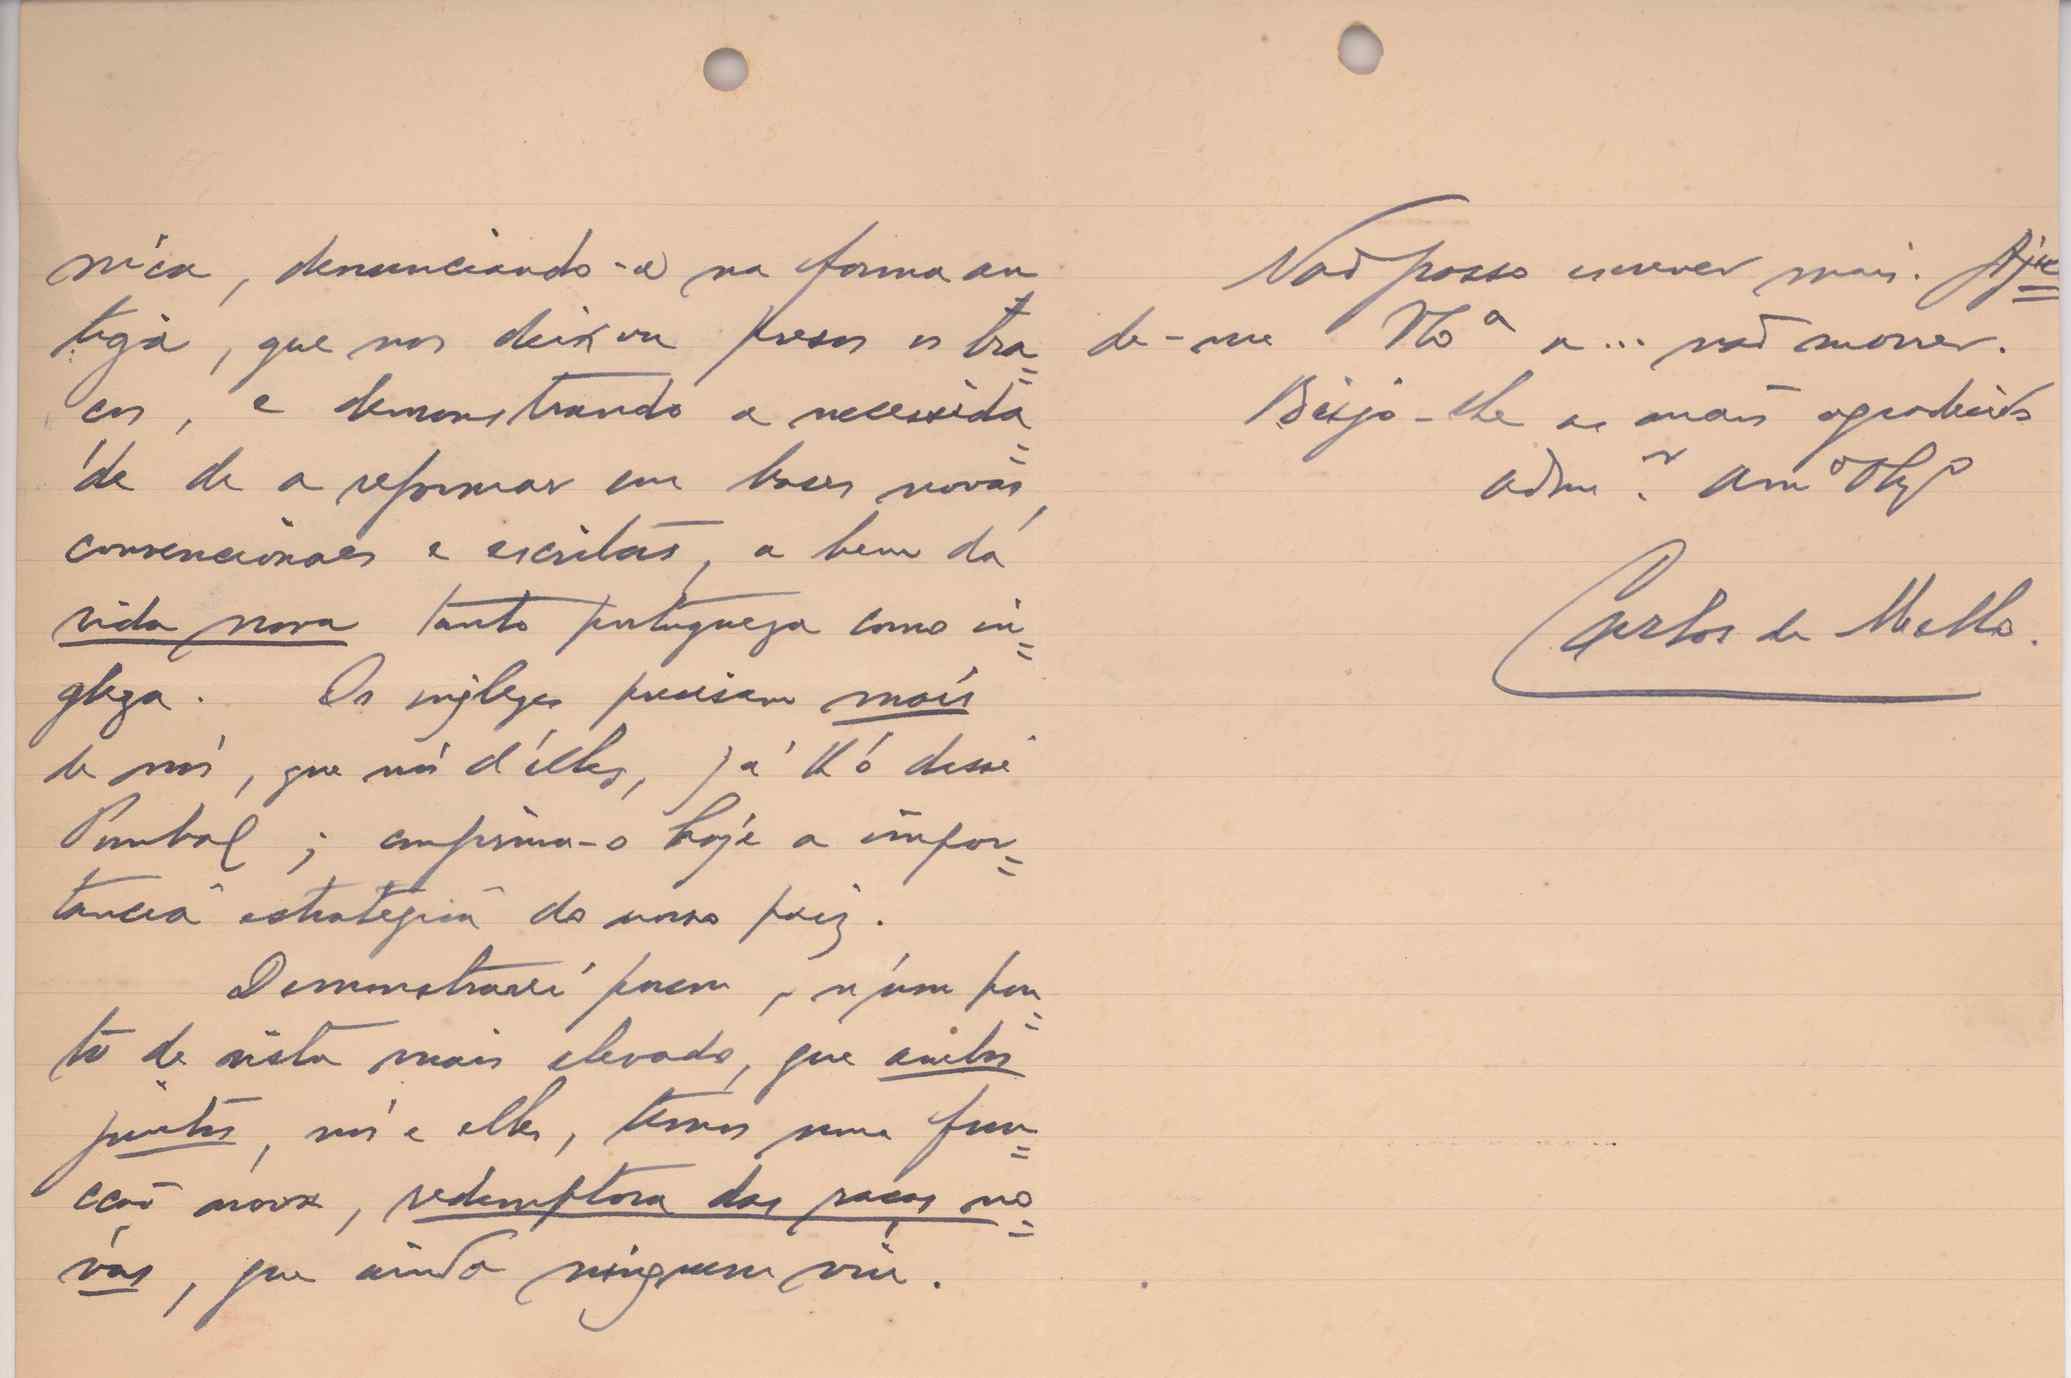 nica, denunciando-a na forma an
tiga, que nos deixou presos os bra=
cos, e demonstrando a necessida=
de de a reformar em bases novas,
convencionaes e escritas, a bem da
vida nova tanto portugueza como in=
gleza. Os inglezes precisam mais
de nós, que nós d'élles, já o disse
Pombal; comprima-o hoje a impor=
tancia estrategica do nosso paiz.
Demonstrarei porem, n'um pon=
to de vista mais elevado, que ambos
juntos, nós e elles, temos uma fun=
cção nova, redemptora das raças no=
vas, que ainda ninguem viu.
Não posso escrever mais. Aju=
de-me a... não morrer.
Beijo-lhe as mãos agradecido
adm.r am.o
Carlos de Mello.